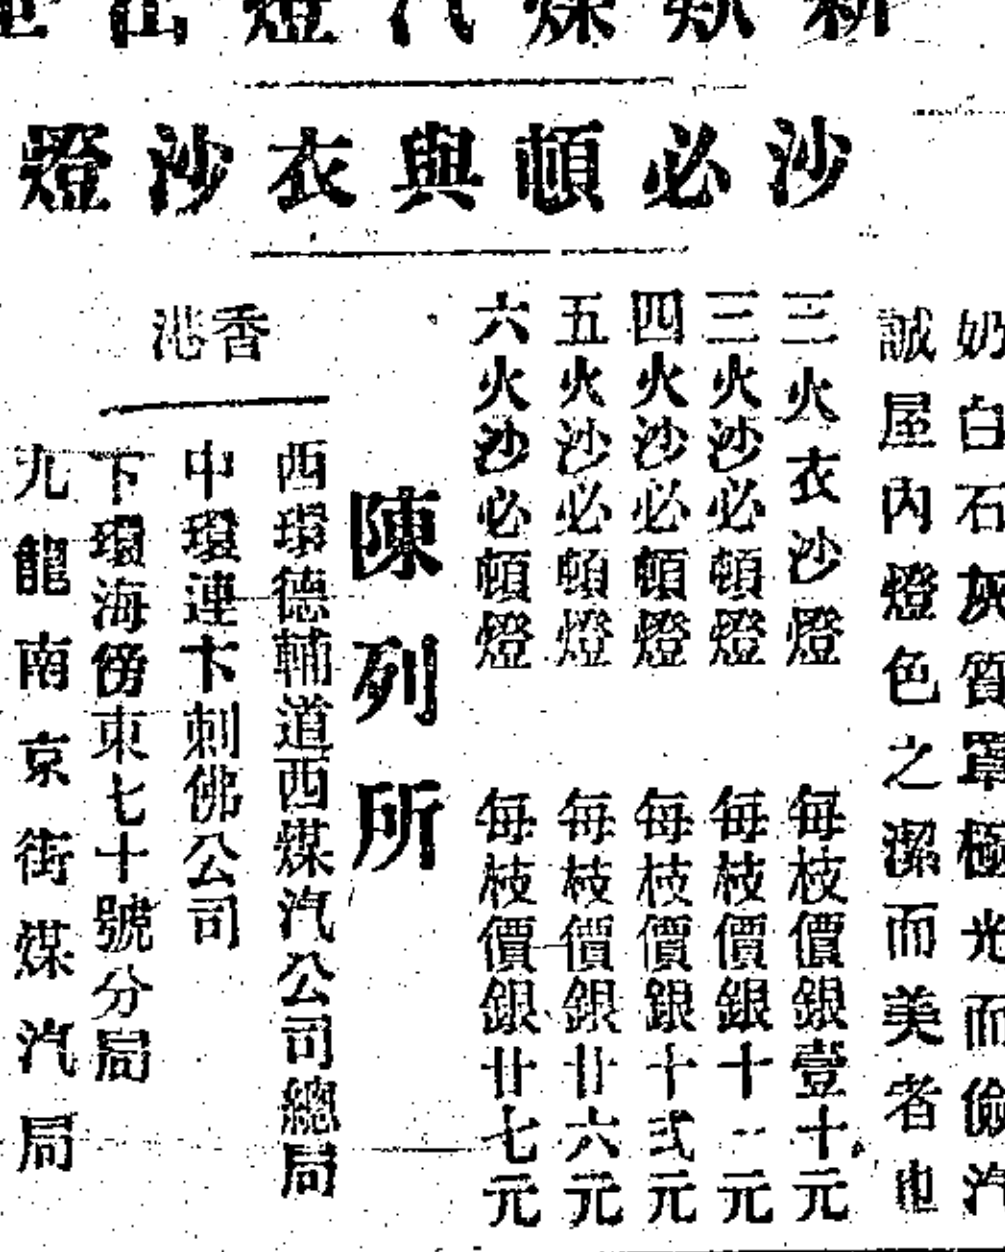 新款煤汽燈出
沙必頓與衣沙燈
奶白石灰質罩極光而儉汽
誠屋內燈色之潔而美者也
三火衣沙燈 每枝價銀壹十元
三火沙必頓燈 每枝價銀十一元
四火沙必頓燈 每枝價銀十弍元
五火沙必頓燈 每枝價銀廿六元
六火沙必頓燈 每枝價銀廿七元
陳列所
香港
西環德輔道西煤汽公司總局
中環連卡剌佛公司
下環海傍東七十號分局
九龍南京街煤汽局